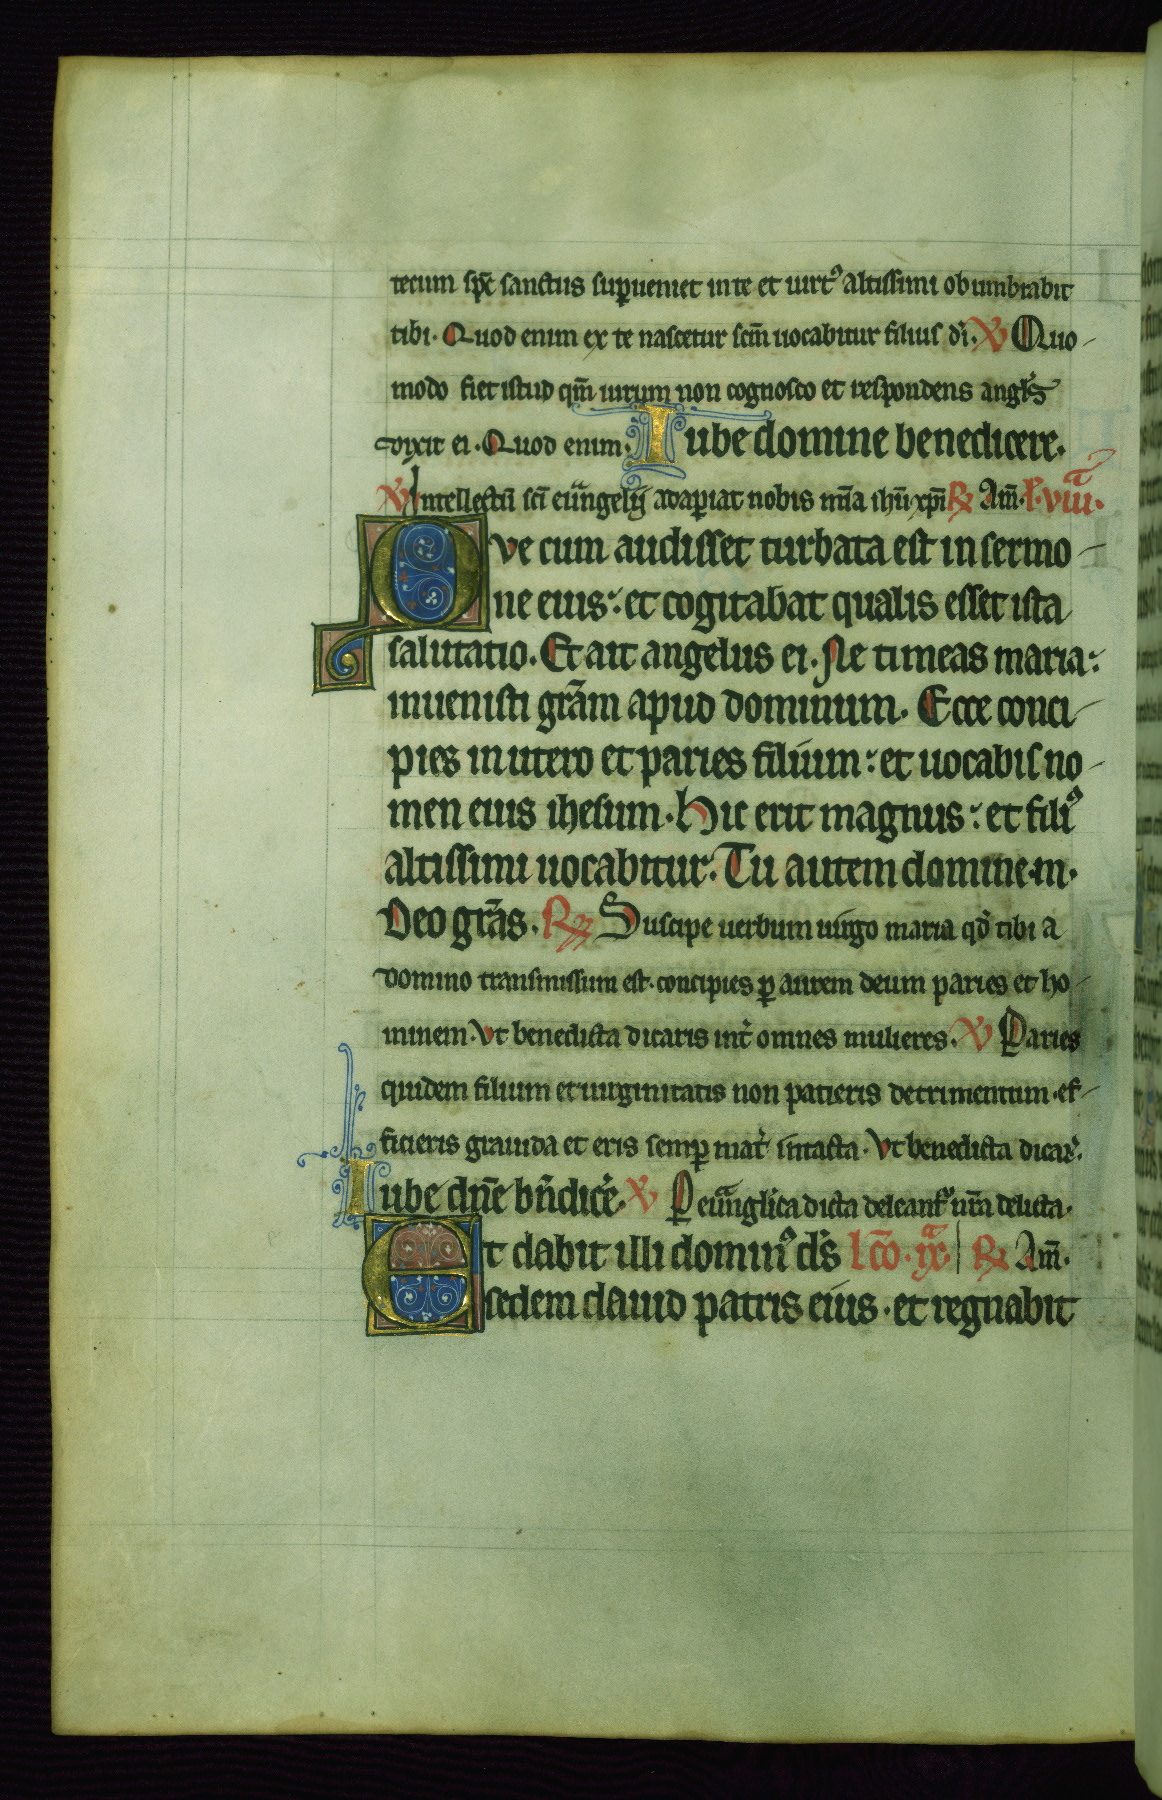 tecum sp̄c sanctus sup̱ueniet in te et uirtꝰ altissimi obumbrabit
tibi. Quod enim ex te nascetur sc̄m uocabitur filius di̅. ℣ Quo-
modo fiet istud qm̄ uirum non cognosco et respondens angls̄
dixit ei. Quod enim. Iube domine benedicere.
℣ Intellectū sc̄i euangelij adaꝑiat nobis nr̄a ihū xp̄i ℟ Am̄. l̄. viiiͣ.
Que cum audisset turbata est in sermo-
ne eius: et cogitabat qualis esset ista
salutatio. Et ait angelus ei. Ne timeas maria:
inuenisti gr̄am apud dominum. Ecce conci-
pies in utero et paries filium: et uocabis no-
men eius ihesum. Hic erit magnus: et filiꝰ
altissimi uocabitur. Tu autem domine. m.
Deo gr̄as. ℟ Suscipe uerbum uirgo maria qd̄ tibi a
domino transmissum est. concipies ꝑ aurem deum paries et ho-
minem. Vt benedicta dicaris int̄ omnes mulieres. ℣ Paries
quidem filium et uirginitatis non patieris detrimentum. ef-
ficieris grauida et eris semꝑ mat̄ intacta. Vt benedicta dicar̄.
Iube dn̄e bn̄dicē. ℣ Ꝑ euanglica dicta deleant᷑ nr̄a delicta.
Et dabit illi dominꝰ ds̄ lc̄o. ixͣ. ℟ Am̄.
sedem dauid patris eius. et regnabit